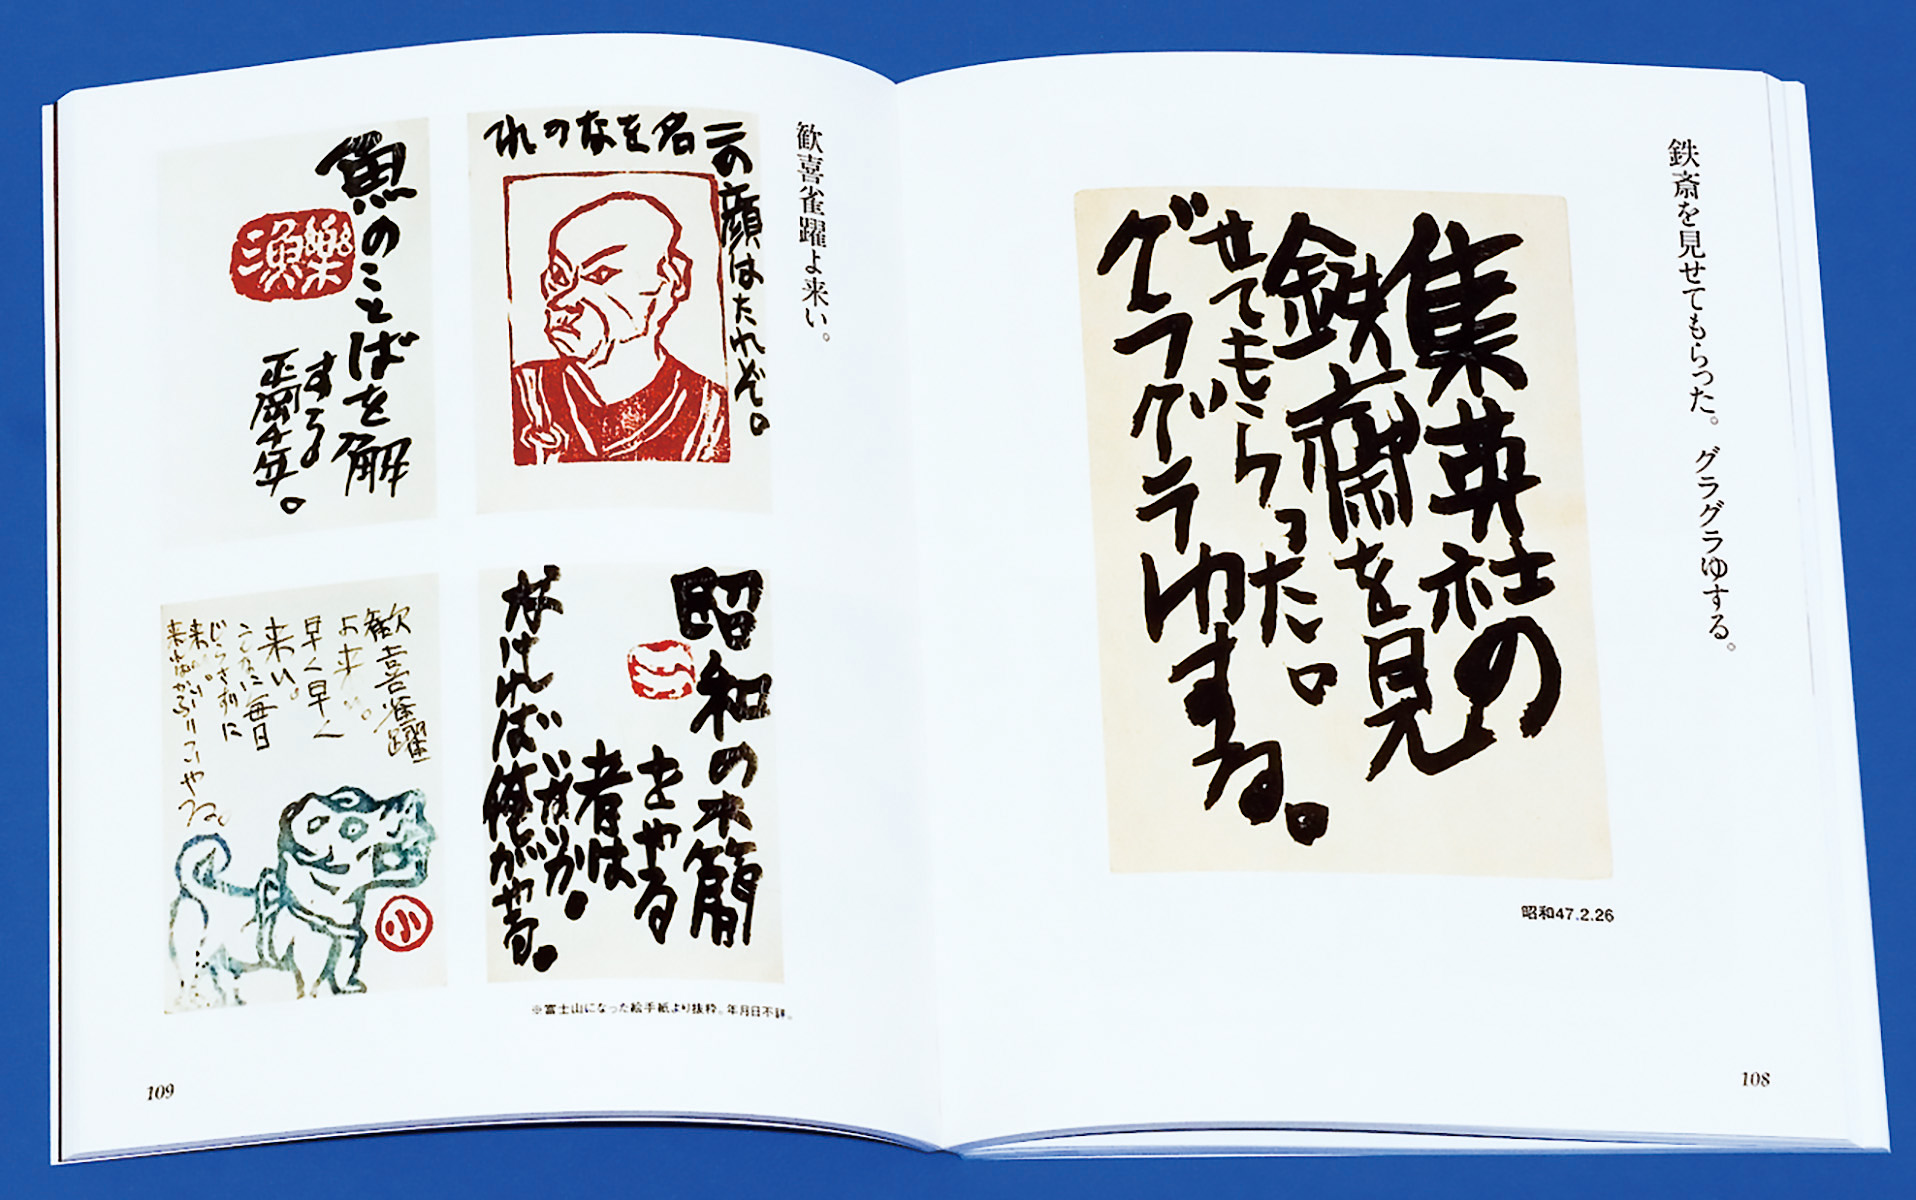 鉄斎を見せてもらった。グラグラゆする。
集英社の
鉄斎を見
せてもらった。
グラグラゆする。
昭和47.2.26
108
歓喜雀躍よ来い。
この顔はたれぞ。
名をなのれ
魚のことばを解
する
正岡千年。
漁樂
昭和の木簡
をやる
者は
いないか。
なければ俺がやる。
歓喜雀躍
よ来い。
早く早く
来い。
こんなに毎日
じらさずに
来い。
小
※富士山になった絵手紙より抜粋。年月日不詳。
109